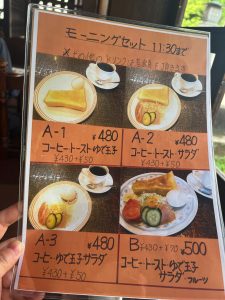 モーニングセット 11:30まで
A-1 ¥480
コーヒー トースト ゆで玉子
¥430+¥50
A-2 ¥480
コーヒー トースト サラダ
¥430+¥50
A-3 ¥480
コーヒー ゆで玉子 サラダ
¥430+¥50
B ¥430+¥70 ¥500
コーヒー トースト ゆで玉子
サラダ フルーツ